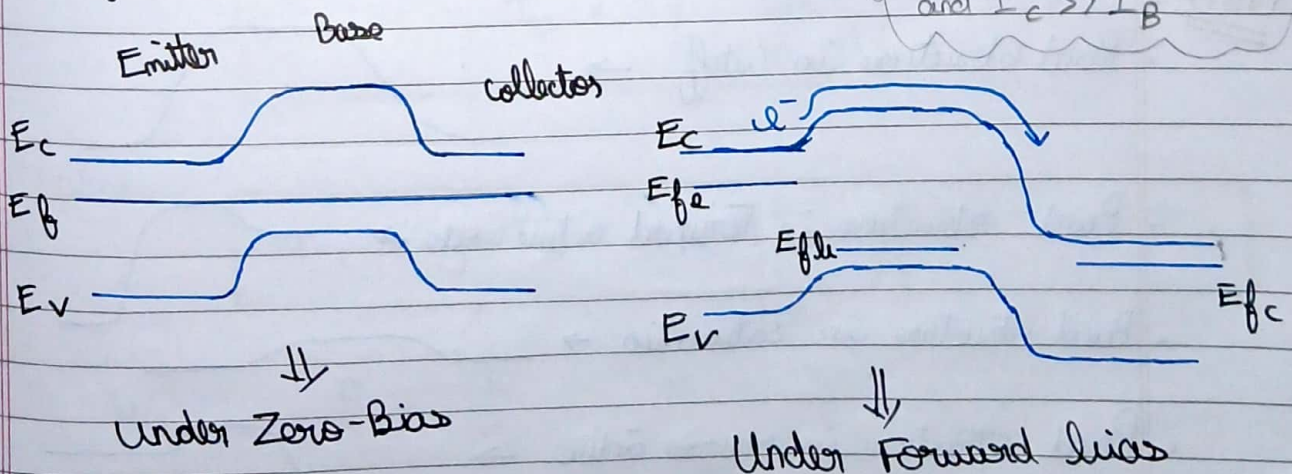 and I_C >> I_B
Emitter Base collector
E_c
E_f
E_v
Under Zero-Bias
E_c e^-
E_fe
E_fb
E_fc
E_v
Under Forward bias